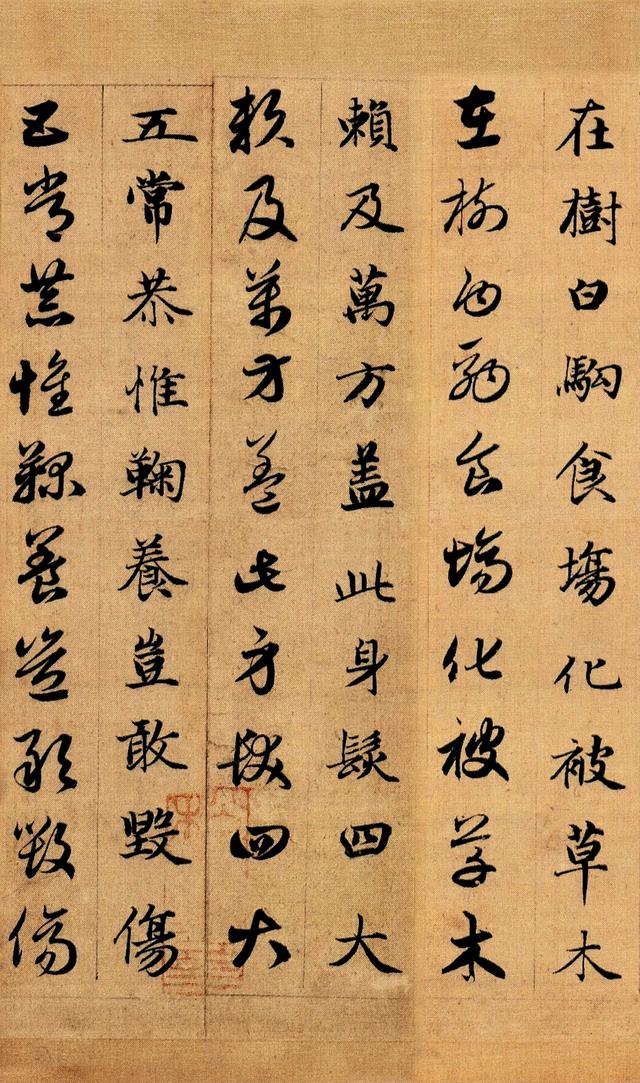 在樹白駒食塲化被草木
在樹白駒食塲化被草木
賴及萬方盖此身髮四大
賴及萬方盖此身髮四大
五常恭惟鞠養豈敢毀傷
五常恭惟鞠養豈敢毀傷